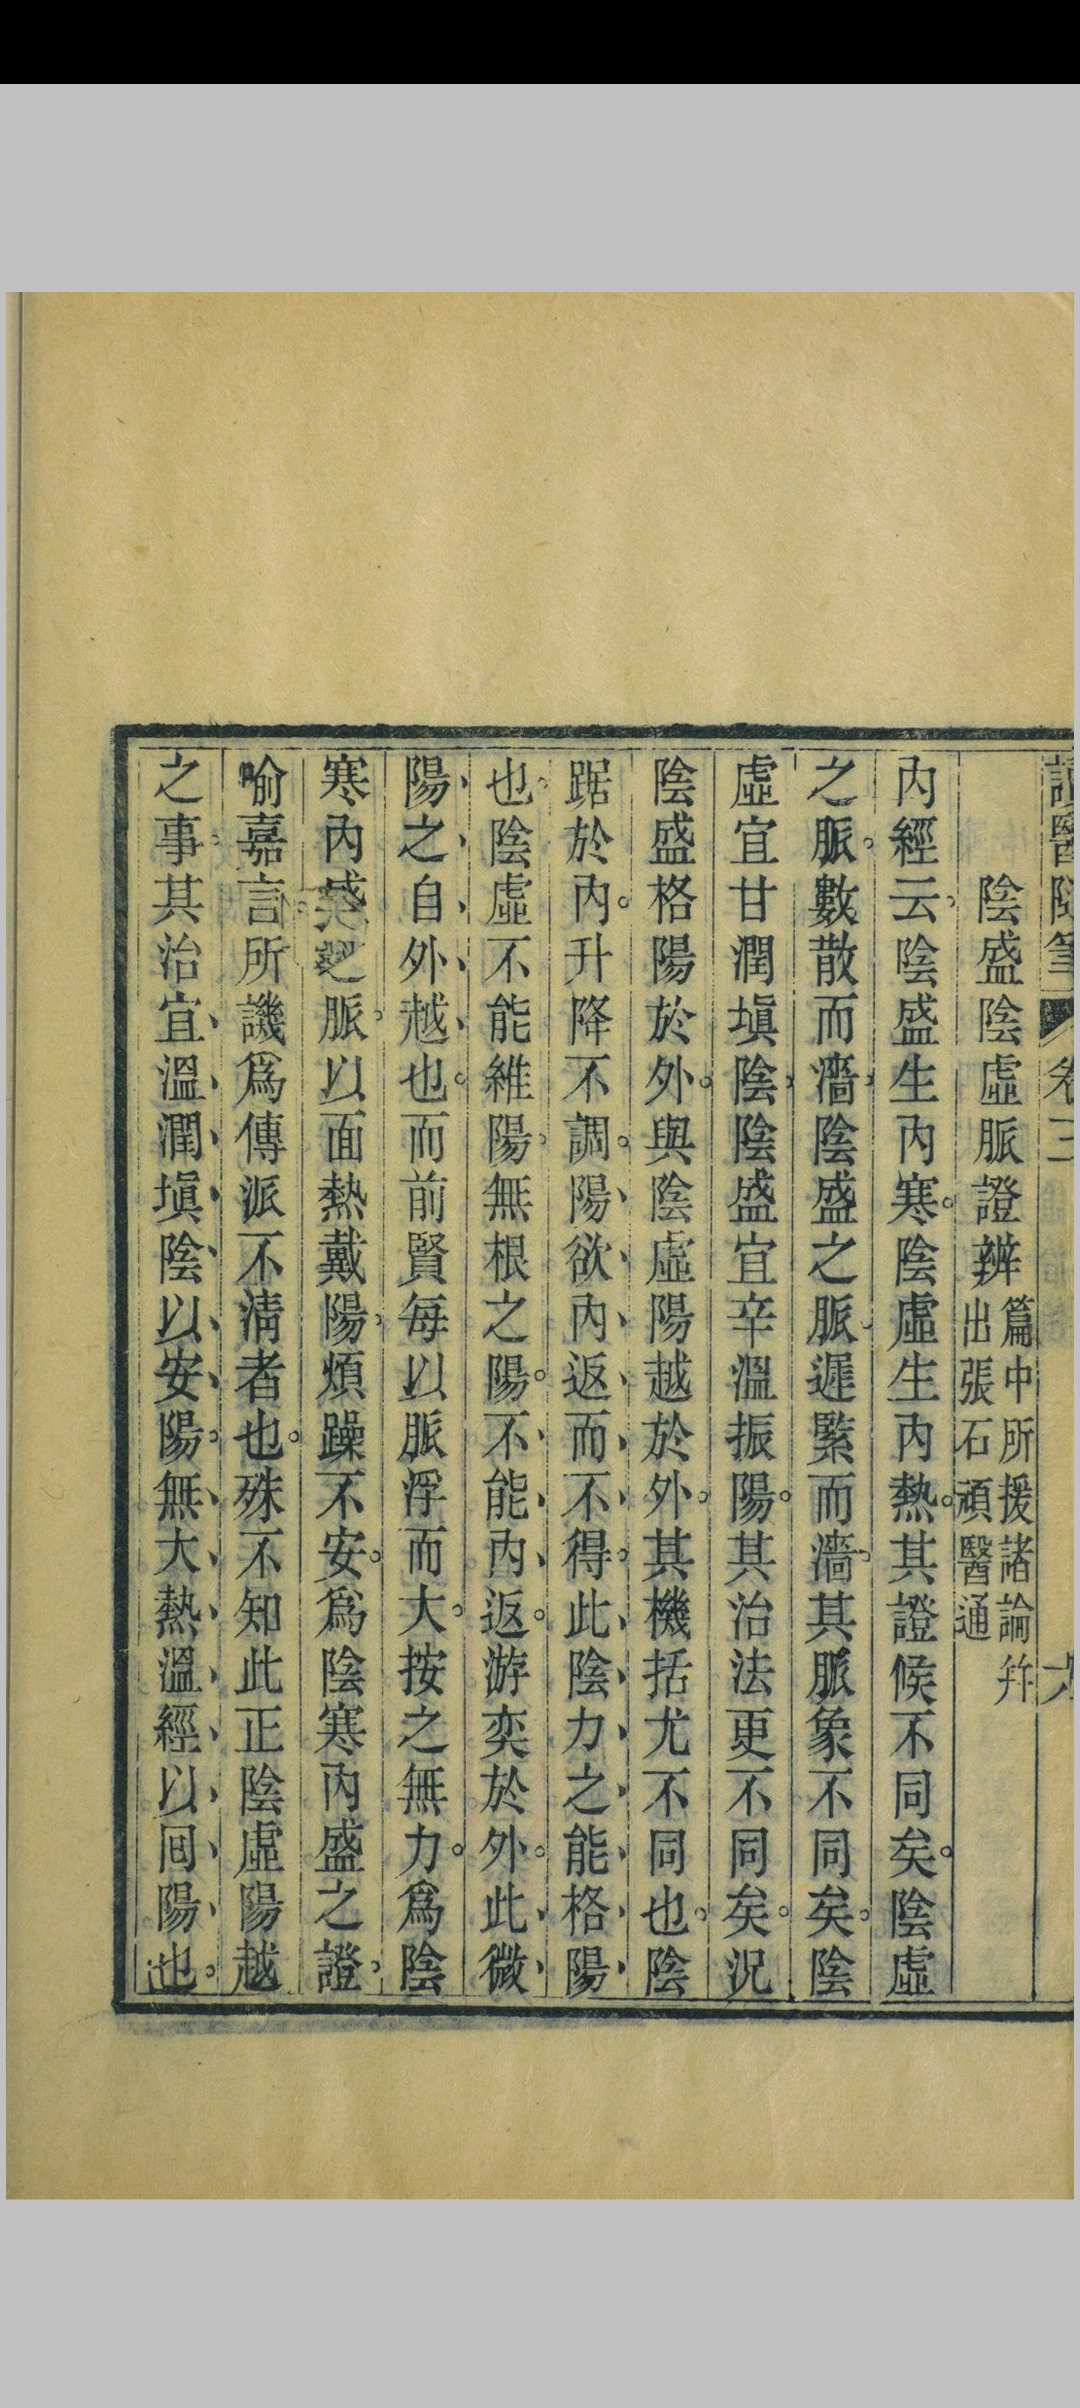 讀醫隨筆 卷三
陰盛陰虛脈證辨 篇中所援諸論幷
出張石頑醫通
內經云陰盛生內寒陰虛生內熱其證候不同矣陰虛
之脈數散而濇陰盛之脈遲緊而濇其脈象不同矣陰
虛宜甘潤塡陰陰盛宜辛溫振陽其治法更不同矣況
陰盛格陽於外與陰虛陽越於外其機括尤不同也陰
踞於內升降不調陽欲內返而不得此陰力之能格陽
也陰虛不能維陽無根之陽不能內返游奕於外此微
陽之自外越也而前賢每以脈浮而大按之無力爲陰
寒內盛之脈以面熱戴陽煩躁不安爲陰寒內盛之證
喻嘉言所譏爲傳派不淸者也殊不知此正陰虛陽越
之事其治宜溫潤塡陰以安陽無大熱溫經以囘陽也